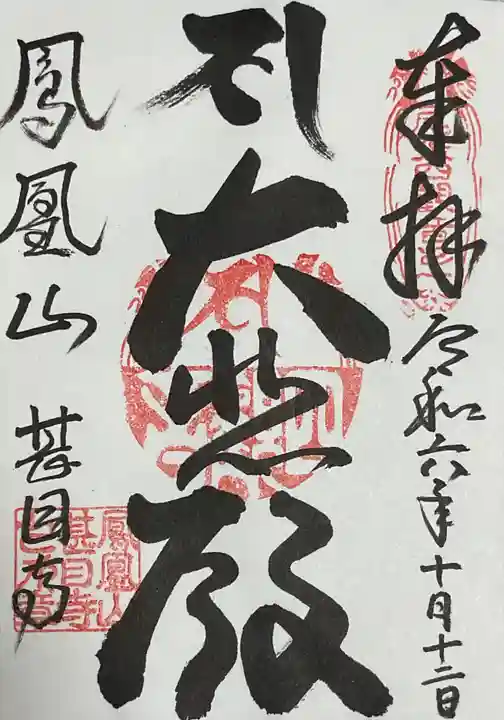 奉拝
令和六年十月十二日
大悲殿
鳳凰山 甚目寺
鳳凰山
甚目寺